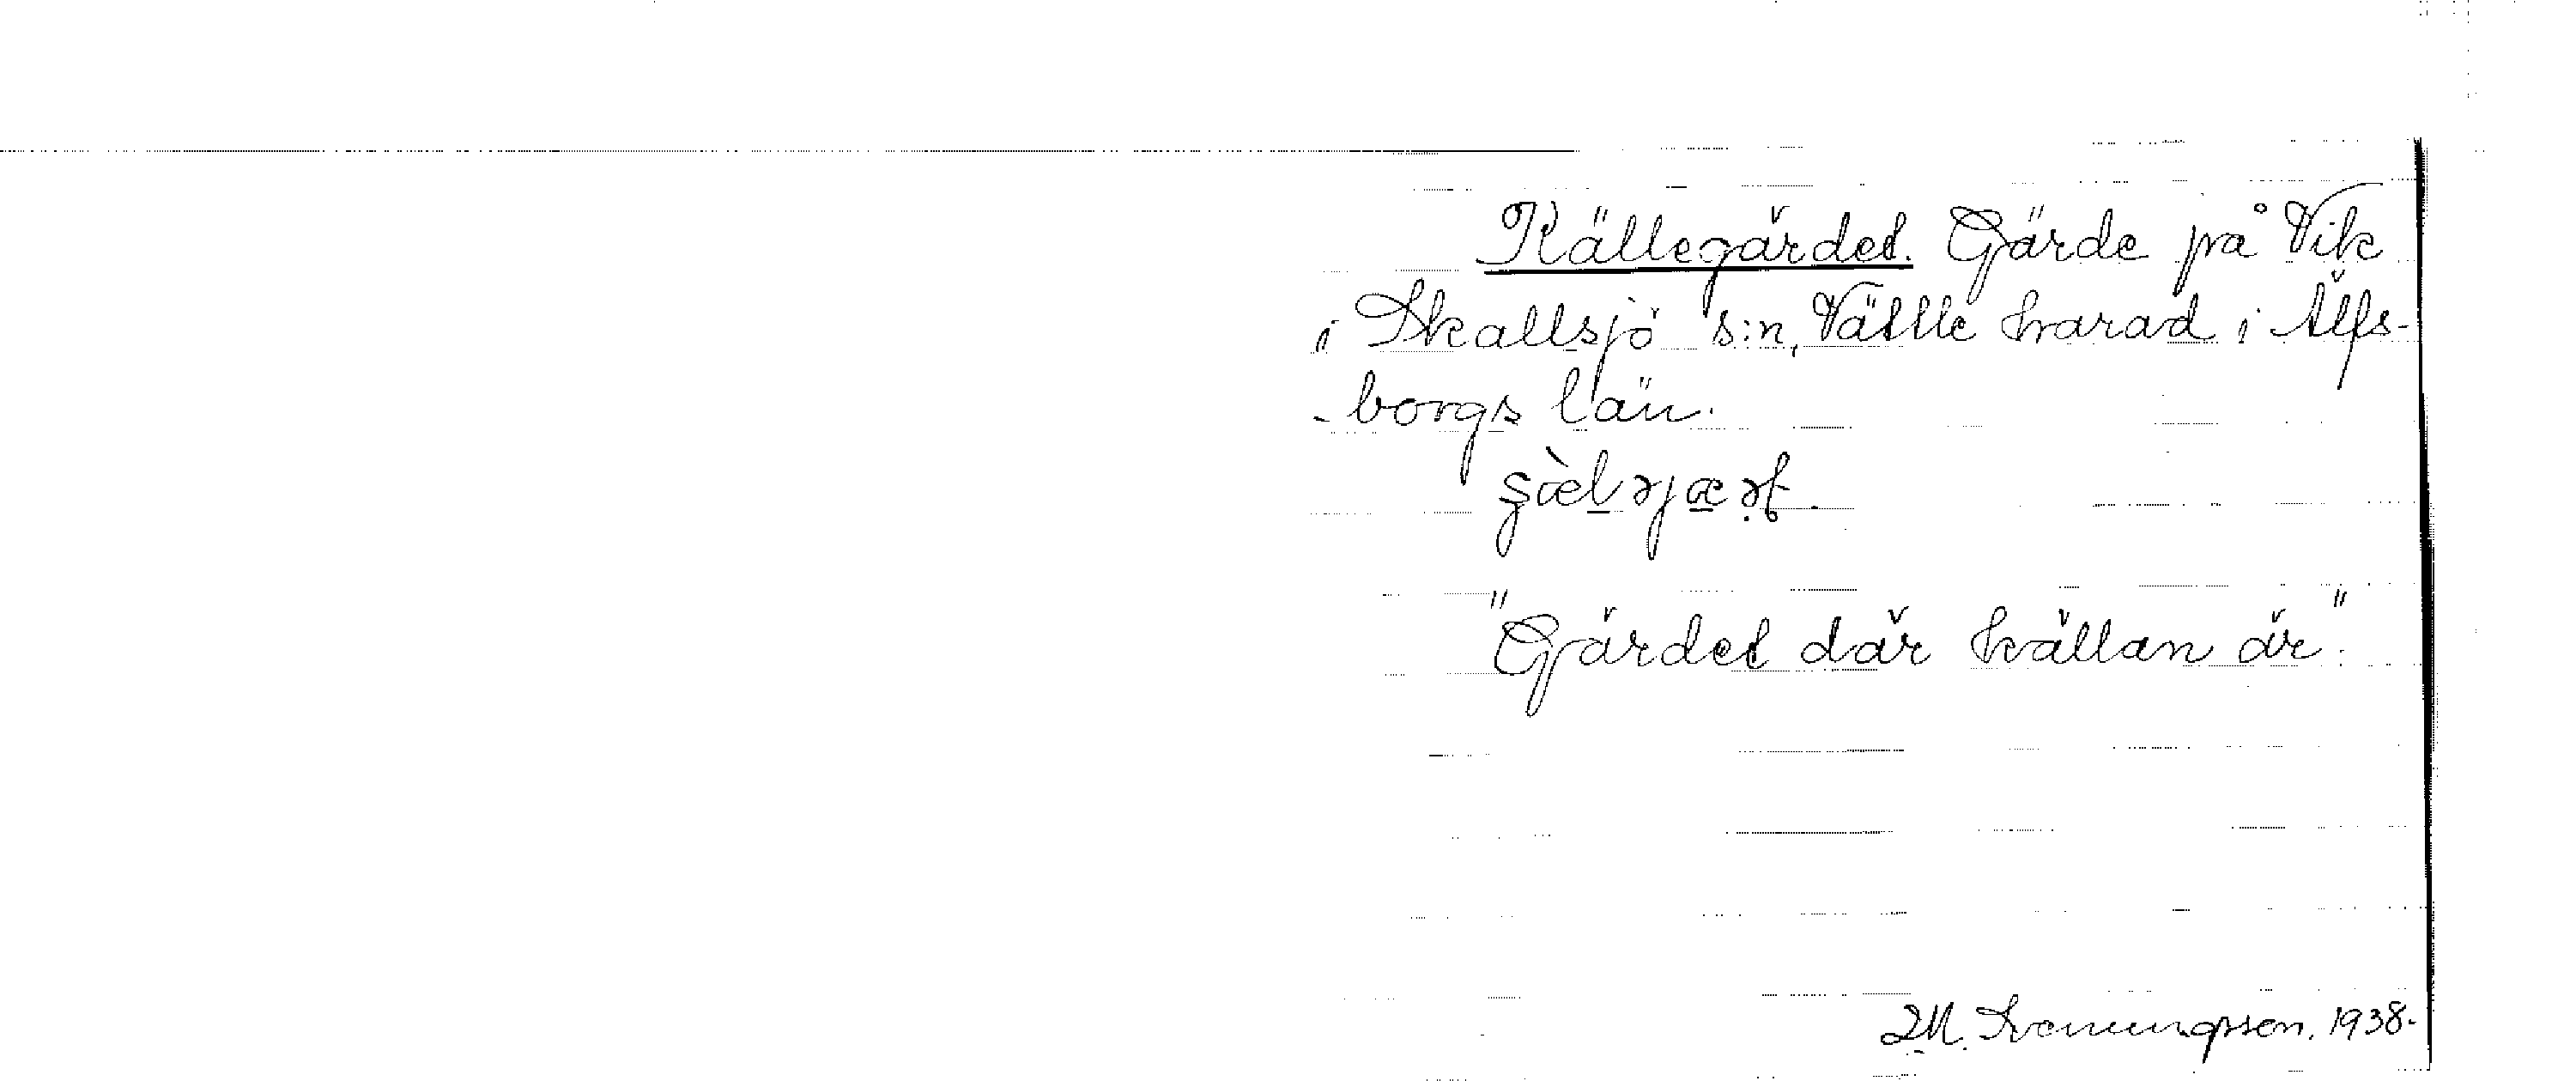 Källegärdet. Gärde på Vik
i Skallsjö s:n, Vättle härad i Älfs-
-borgs län.
"Gärdet där källan är".
M. Svenungsson. 1938.